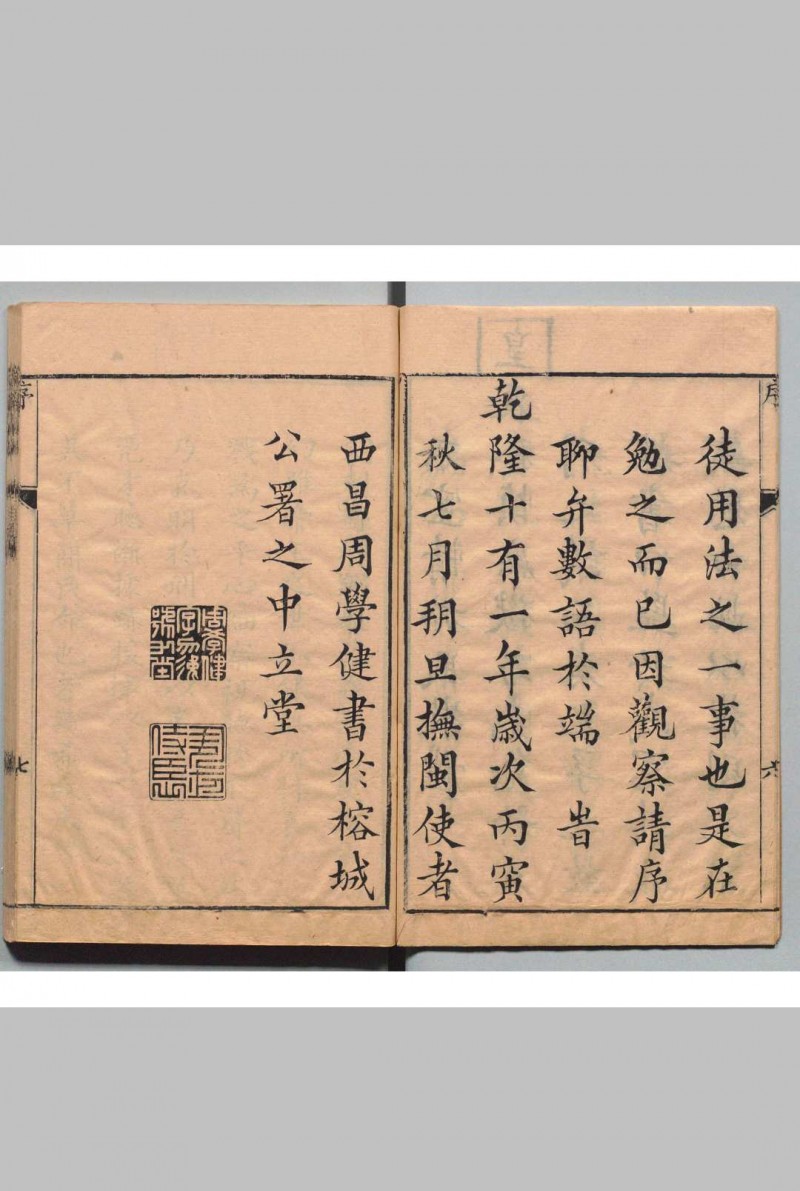 徒用法之一事也是在
勉之而已因觀察請序
聊弁數語於端 旹
乾隆十有一年歲次丙寅
秋七月朔旦撫閩使者
西昌周學健書於榕城
公署之中立堂
周學健
序
六
序
七